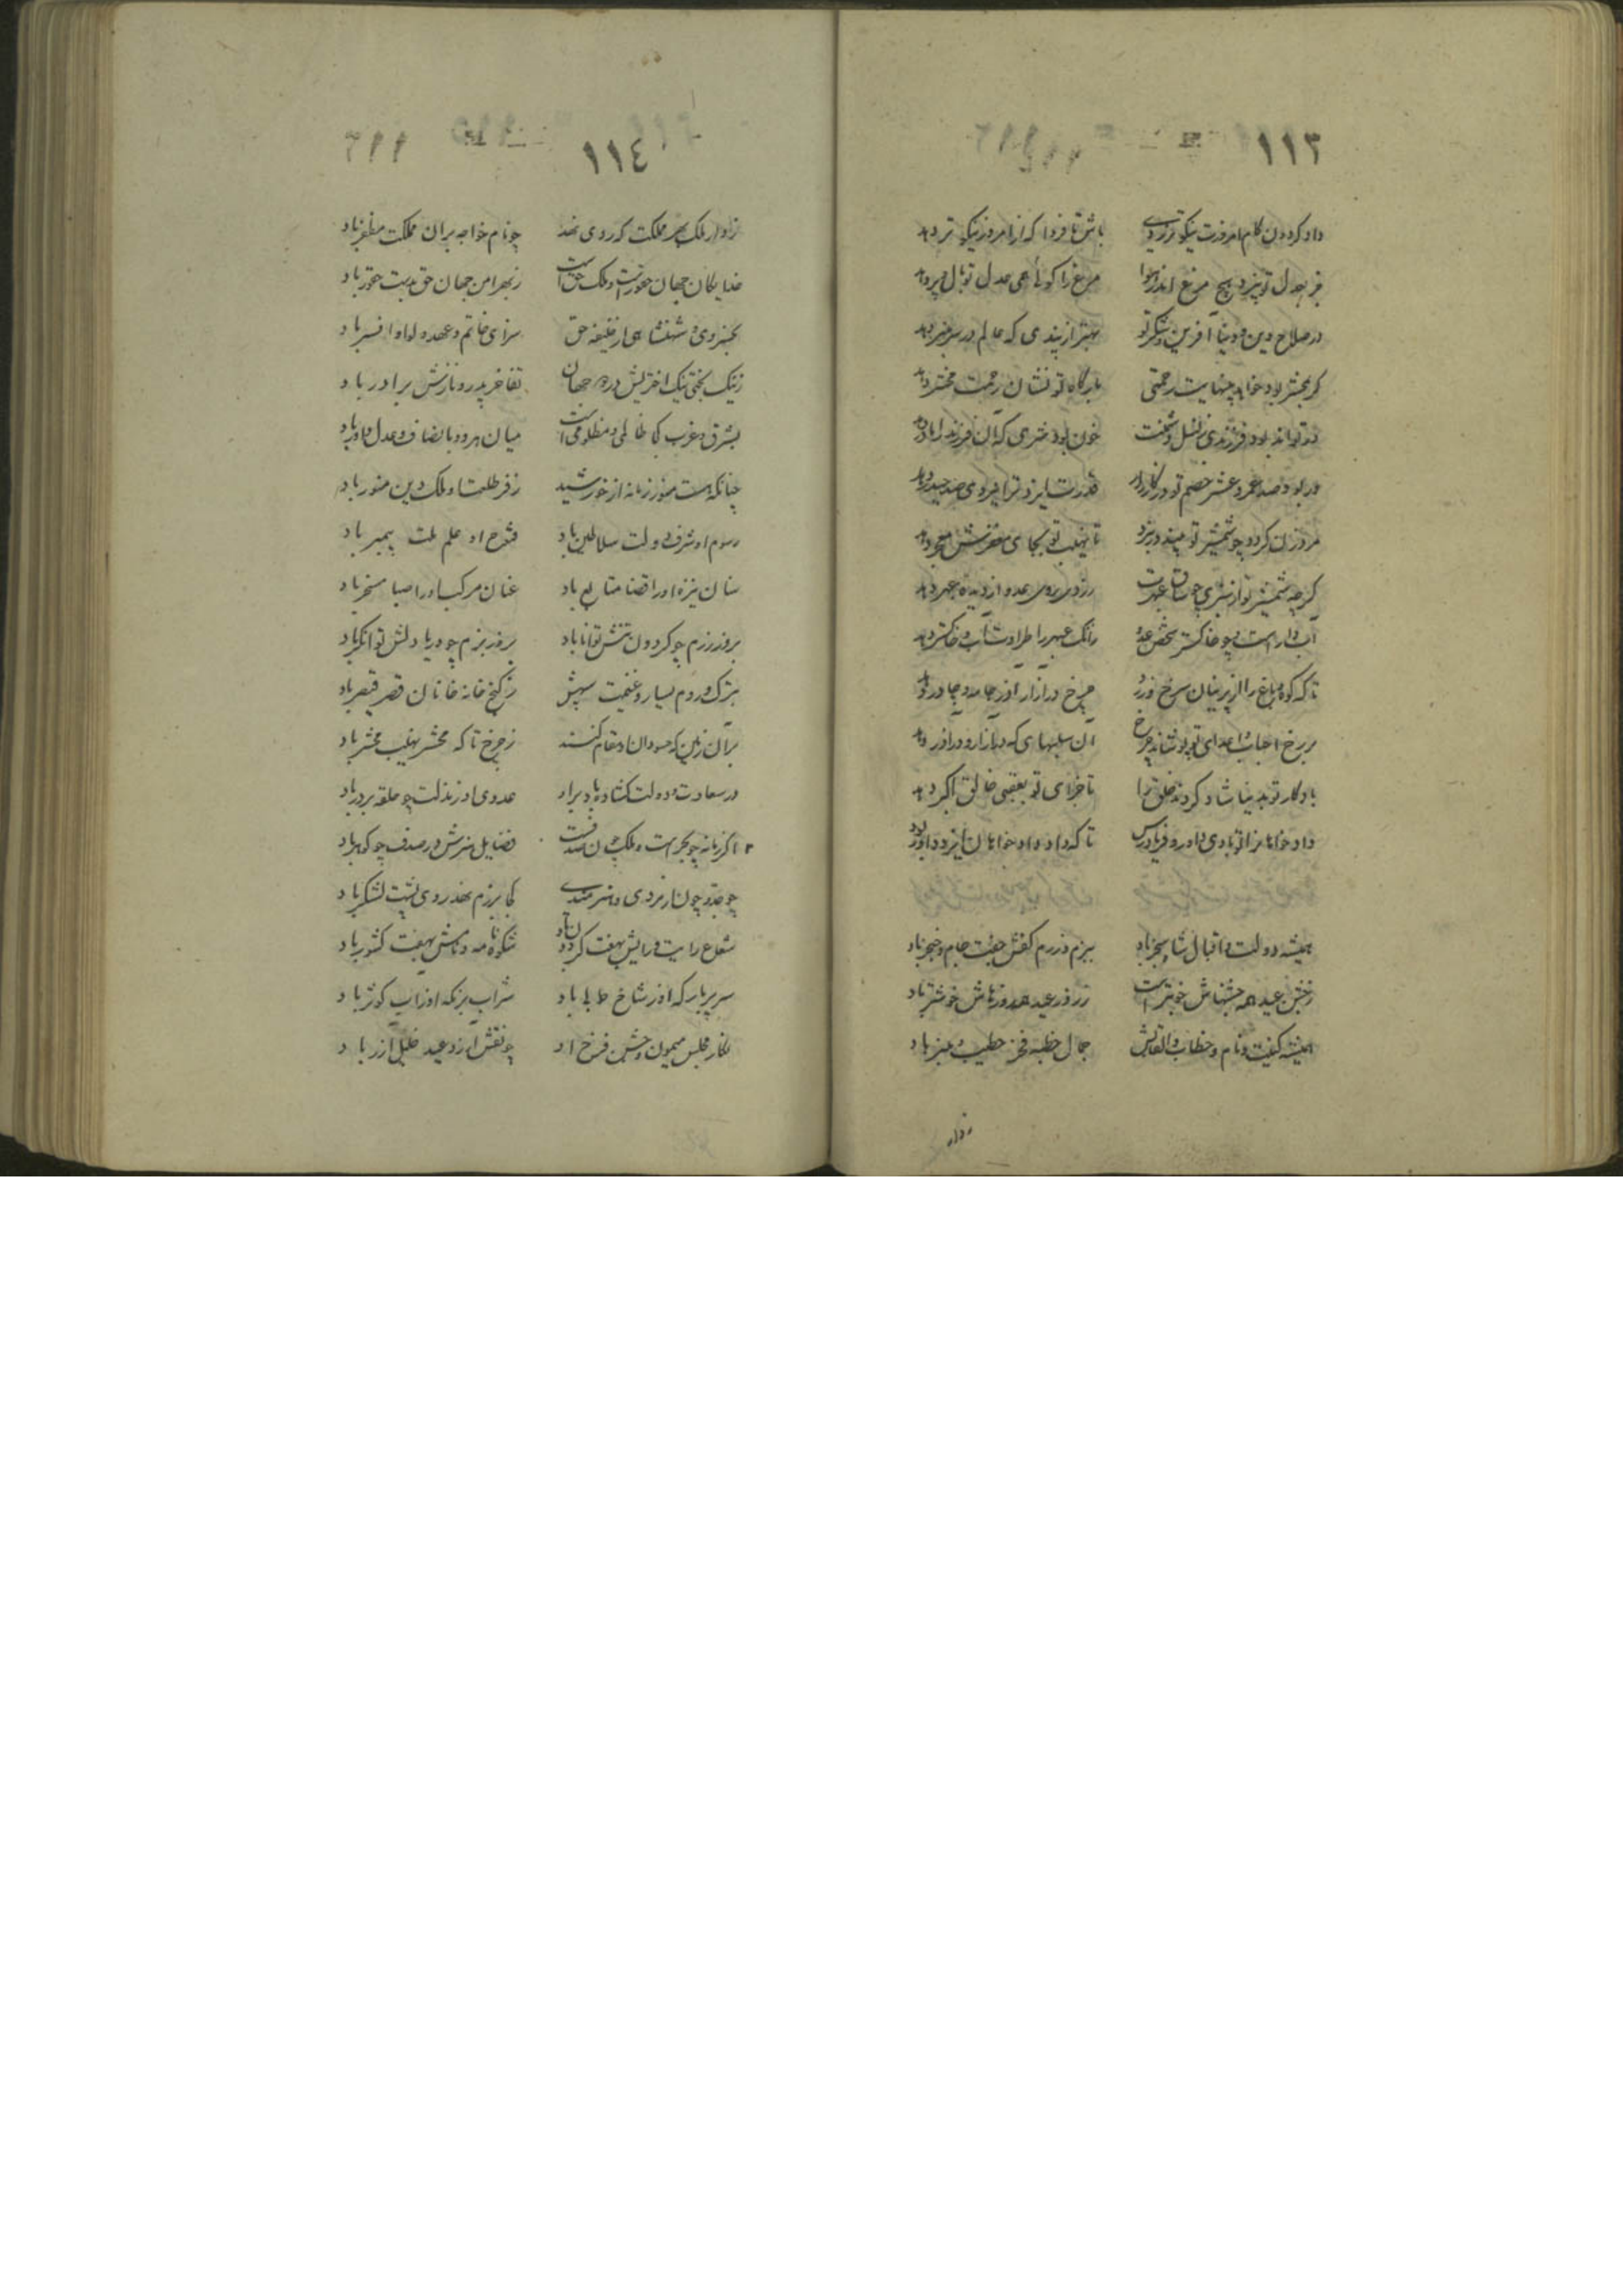 ١١٣
داد کردون کام امروزت نیکوتر زدی باش تا فردا که از امروز نیکوتر دهد
جز بعدل تو نپرد هیچ مرغ اندر هوا مرغ را کوئی همی عدل تو بال و پر دهد
در صلاح دین و دنیا آفرین و شکر تو بهتر از پندی که عالم در سر منبر دهد
کر بمحشر بود خواهد بینهایت رحمتی بارکاه تو نشان رحمت محشر دهد
خون بود شیری که آن فرزند را مادر دهد
ور بود صد عمرو عنتر خصم تو در کارزار قدرت ایزد ترا نیروی صد حیدر دهد
مرد زن کردد چو شمشیر تو بیند در نبرد تا نهیب تو بجای مغفرش معجر دهد
کر چه شمشیر تو از
آبدار است و چو خاکستر شخص عدو رنک عبهر را طراوت آب و خاکستر دهد
تا که کوه و باغ را از پرنیان سرخ و زرد چرخ در آزار و آذر جامه و چادر دهد
بر رخ احباب و اعدای تو پوشاند چرخ آن سلبهای که در آزار و در آذر دهد
باد کار تو بدنیا شاد کردن خلق را تا جزای تو بعقبی خالق اکبر دهد
داد خواهانرا تو بادی داور و فریادرس تا که داد داد خواهان ایزد داور دهد
همیشه دولت و اقبال شاه سنجر باد ببزم و رزم کفش جفت جام و خنجر باد
ز جشن عید همه جشنهاش خوبتر است ز روز عید همه روزهاش خوشتر باد
همیشه کنیت و نام و خطاب و القابش جمال خطبه و فخر خطیب و منبر باد
١١٤
بهر مملکت که روی نهد چو نام خواجه بران مملکت مظفر باد
خدایکان جهان حقور است و ملک حق است ز بهر امن جهان حق بدست حقور باد
بخسروی و شهنشاهی از خلیفه حق سزای خاتم و عهد و لوا و افسر باد
ز نیک بختی و نیک اختریش در دو جهان تفاخر پدر و نازش برادر باد
بشرق و غرب کجا ظالمی و مظلومی است میان هر دو بانصاف و عدل داور باد
چنانکه هست منور زمانه از خورشید ز فر طلعت او ملک و دین منور باد
رسوم او شرف دولت سلاطین باد فتوح او علم ملت پیمبر باد
سنان نیزه او را قضا متابع باد عنان مرکب او را صبا مسخر باد
بروز رزم چو کردون تنش توانا باد بروز بزم چو دریا دلش توانکر باد
بترک و روم بسیار و غنیمت سپهش ز کنج خانه خانان و قصر قیصر باد
بر آن زمین که حسودان او مقام کنند ز چرخ تا که محشر نهیب محشر باد
در سعادت و دولت کشاده باد برو عدوی او ز مذلت چو حلقه بر در باد
اکر زمانه چو بحر است و ملک چون صدف است فضایل هنرش در صدف چو کوهر باد
کجا برزم نهد روی پشت لشکر باد
شعاع رایت و رایش بهفت کردون باد شکوه نامه و نامش بهفت کشور باد
سریر بارکه او ز شاخ طوبی باد شراب بزمکه او ز آب کوثر باد
نکار مجلس میمون و جشن فرخ او چو نقش آزر و عید خلیل آزر باد